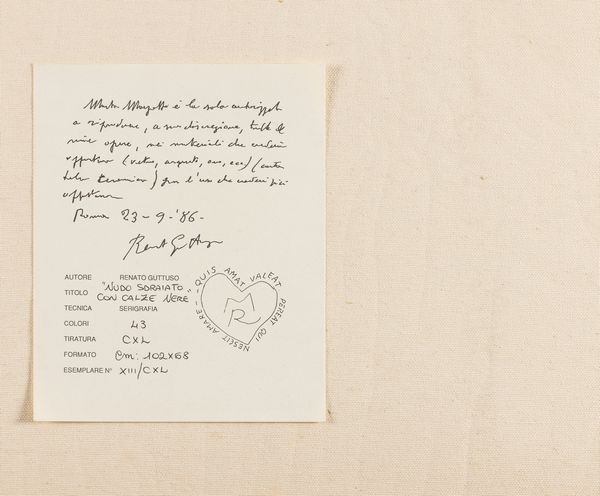 Marta Marzotto è la sola autorizzat
a riprodurre, a sua discrezione, tutte le
mie opere, nei materiali che crederà
opportuno (vetro, argento, oro, ecc) (carta
tela ceramica) per l'uso che crederà più
opportuno
Roma 23-9-'86-
Renato Guttuso
AUTORE RENATO GUTTUSO
TITOLO "NUDO SDRAIATO
CON CALZE NERE"
TECNICA SERIGRAFIA
COLORI 43
TIRATURA CXL
FORMATO Cm: 102X68
ESEMPLARE N° XIII/CXL
QUIS AMAT VALEAT PEREAT QUI NESCIT AMARE
MR